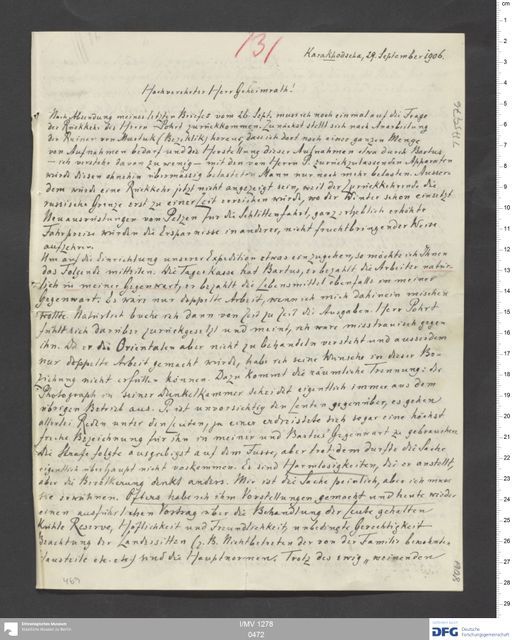 131
Karakhodscha, 29. September 1906.
Hochverehrter Herr Geheimrath!
Nach Absendung meines letzten Briefes vom 26. Sept. muss ich noch einmal auf die Frage
der Rückkehr des Herrn Pohrt zurückkommen. Zunächst stellt sich nach Ausarbeitung
der Ruinen von Murtuk (Bezeklik) heraus, dass ich dort noch einer ganzen Menge
von Aufnahmen bedarf und die Herstellung dieser Aufnahmen etwa durch Bartus
– ich verstehe davon zu wenig – mit den von Herrn P. zurückzulassenden Apparaten
würde diesen ohnehin übermässig belasteten Mann nur noch mehr belasten. Ausser
dem würde eine Rückkehr jetzt nicht angezeigt sein, weil der Zurückkehrende die
russische Grenze erst zu einer Zeit erreichen würde, wo der Winter schon einsetzt
Neuausrüstungen von Pelzen für die Schlittenfahrt, ganz erheblich erhöhte
Fahrpreise würden die Ersparnisse in anderer, nicht fruchtbringender Weise
aufzehren.
Um auf die Einrichtung unserer Expedition etwas einzugehen, so möchte ich Ihnen
das Folgende mittheilen. Die Tageskasse hat Bartus, er bezahlt die Arbeiter natür-
lich in meiner Gegenwart, er bezahlt die Lebensmittel ebenfalls in meiner
Gegenwart. Es wäre nur doppelte Arbeit, wenn ich mich dahinein mischen
wollte. Natürlich buche ich dann von Zeit zu Zeit die Ausgaben. Herr Pohrt
fühlt sich darüber zurückgesetzt und meint, ich wäre misstrauisch gegen
ihn. Da er die Orientalen aber nicht zu behandeln versteht und ausserdem
nur doppelte Arbeit gemacht würde, habe ich seine Wünsche in dieser Be-
ziehung nicht erfüllen können. Dazu kommt die räumliche Trennung: der
Photograph in seiner Dunkelkammer scheidet eigentlich immer aus dem
übrigen Betrieb aus. P. ist unvorsichtig den Leuten gegenüber, es gehen
allerlei Reden unter den Leuten, ja einer erdreistete sich sogar eine höchst
freche Bezeichnung für ihn in meiner und Bartus' Gegenwart zu gebrauchen
die Strafe folgte ausgiebigst auf dem Fusse, aber trotzdem durfte die Sache
eigentlich überhaupt nicht vorkommen. Es sind Harmlosigkeiten, die er anstellt,
aber die Bevölkerung denkt anders. Mir ist die Sache peinlich, aber ich muss
sie erwähnen. Öfters habe ich ihm Vorstellungen gemacht und heute wieder
einen ausführlichen Vortrag über die Behandlung der Leute gehalten
kühle Reserve, Höflichkeit und Freundlichkeit, unbedingte Gerechtigkeit
Beachtung der Landessitten (z. B. Nichtbetreten der von der Familie bewohnten
Hausteile etc. etc.) sind die Hauptnormen. Trotz des ewig „weinenden
469
Ethnologisches Museum
Staatliche Museen zu Berlin
I/MV 1278
0472
DFG
Deutsche
Forschungsgemeinschaft